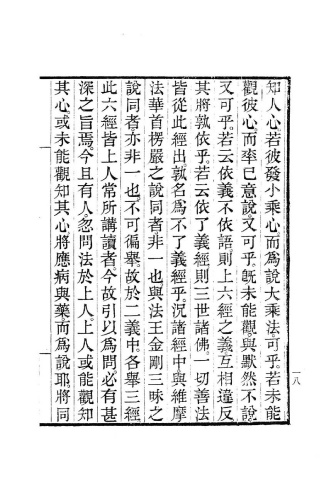 知人心若彼發小乘心而爲說大乘法可乎若未能
觀彼心而率已意說又可乎旣未能觀與默然不說
又可乎若云依義不依語則上六經之義互相違反
其將孰依乎若云依了義經則三世諸佛一切善法
皆從此經出孰名爲不了義經乎況諸經中與維摩
法華首楞嚴之說同者非一也與法王金剛三昧之
說同者亦非一也不可徧舉故於二義中各舉三經
此六經皆上人常所講讀者今故引以爲問必有甚
深之旨焉今且有人忽問法於上人上人或能觀知
其心或未能觀知其心將應病與藥而爲說耶將同
一八